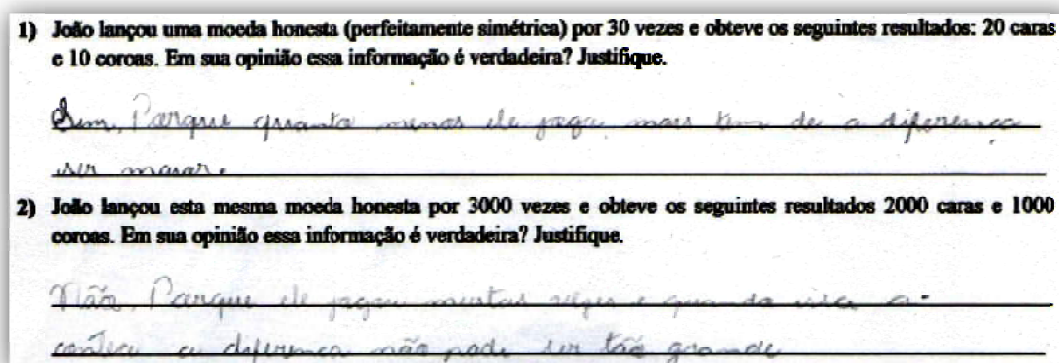 1) João lançou uma moeda honesta (perfeitamente simétrica) por 30 vezes e obteve os seguintes resultados: 20 caras
e 10 coroas. Em sua opinião essa informação é verdadeira? Justifique.
Sim, Porque quanto menos ele joga mais tem de a diferença
ser maior.
2) João lançou esta mesma moeda honesta por 3000 vezes e obteve os seguintes resultados 2000 caras e 1000
coroas. Em sua opinião essa informação é verdadeira? Justifique.
Não, Porque ele jogou muitas vezes e quando isso a-
contece a diferença não pode ser tão grande